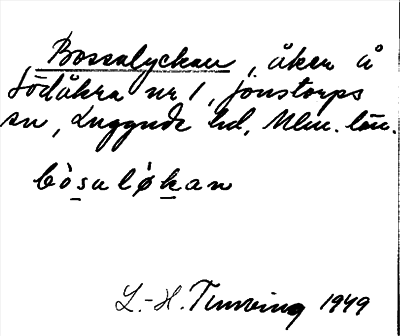 Bossalyckan, åker å
Södåkra nr 1, Jonstorps
sn, Luggude hd, Mlm. län.
bòsaløkan
L.-H. Tunving 1949